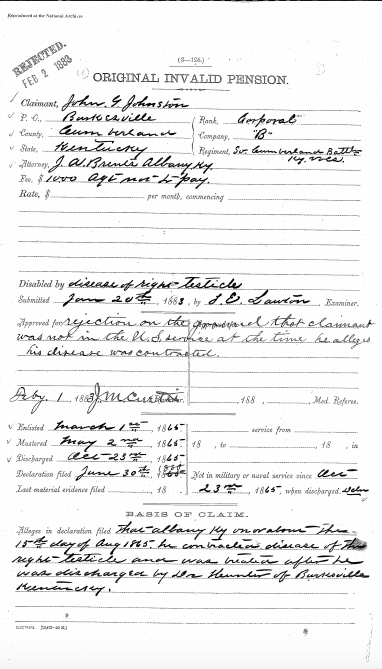 Reproduced at the National Archives
REJECTED.
FEB 2 1883
(3—128.)
ORIGINAL INVALID PENSION.
Claimant, John G Johnston
P. O., Burkesville
Rank, Corporal
County, Cumberland
Company, "B"
State, Kentucky
Regiment, So. Cumberland Battln
Ky. Vols.
Attorney, J. A. Brents Albany Ky.
Fee, $ 10 00 Agt not to pay.
Rate, $ per month, commencing
Disabled by disease of right testicle
Submitted Jan 20th, 1883, by S. E. Lawton, Examiner.
Approved for rejection on the ground that claimant
was not in the U.S. service at the time he alleges
his disease was contracted.
Feby. 1, 1883 J. M. Curtis , 188 , Med. Referee.
Enlisted March 1st 1865 service from
Mustered May 2nd 1865 18 , to 18 , in
Discharged Oct 23rd 1865
Declaration filed June 30th Not in military or naval service since Oct
Last material evidence filed 18 23rd, 1865, when discharged
BASIS OF CLAIM.
Alleges in declaration filed that albany Ky on or about the
15th day of Aug 1865 he contracted disease of the
right testicle and was treated after he
was discharged by Drs Hunter of Burkesville
Kentucky.